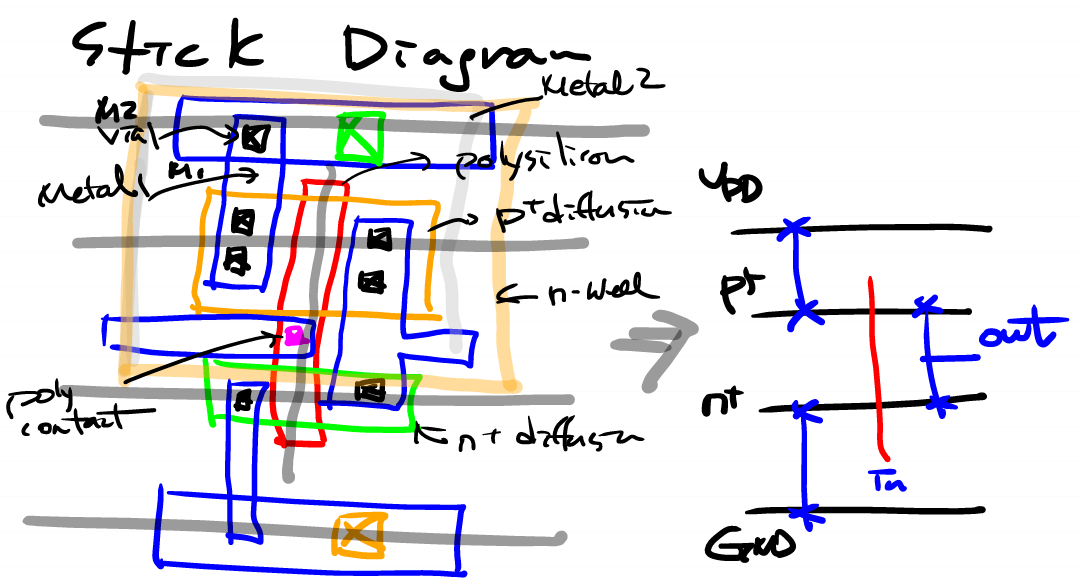 Stick Diagram
Metal 2
M2
via1
polysilicon
Metal1
M1
p+ diffusion
n-well
poly
contact
n+ diffusion
VDD
p+
out
n+
In
GND